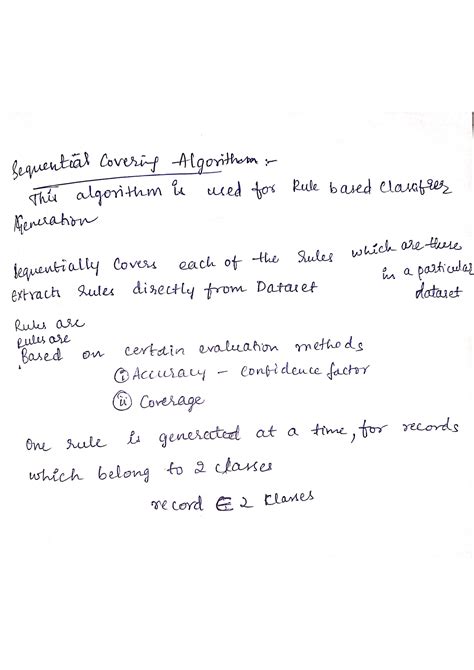 Sequential Covering Algorithm :-
This algorithm is used for Rule based Classifier
Generation
Sequentially Covers each of the rules which are there
in a particular
extracts rules directly from Dataset
dataset
Rules are
Rules are
Based on certain evaluation methods
(i) Accuracy - confidence factor
(ii) Coverage
One rule is generated at a time, for records
which belong to 2 classes
record ∈ 2 classes